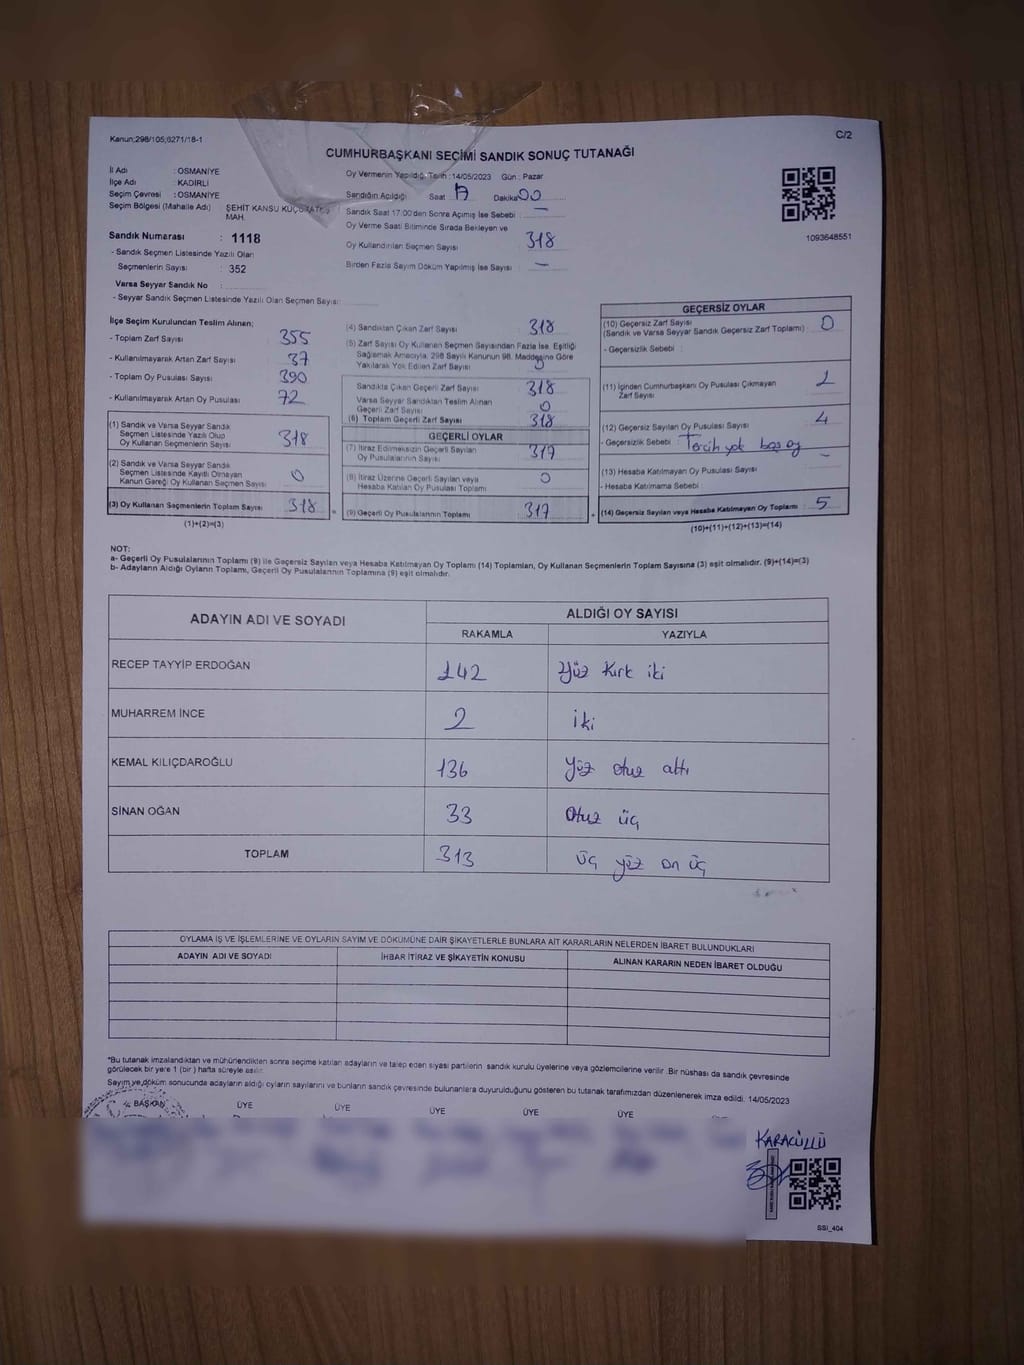 Kanun;298/105;6271/18-1
C/2
CUMHURBAŞKANI SEÇİMİ SANDIK SONUÇ TUTANAĞI
İl Adı : OSMANİYE
İlçe Adı : KADİRLİ
Seçim Çevresi : OSMANİYE
Seçim Bölgesi (Mahalle Adı) : ŞEHİT KANSU
MAH.
Sandık Numarası : 1118
- Sandık Seçmen Listesinde Yazılı Olan
Seçmenlerin Sayısı : 352
Varsa Seyyar Sandık No :
- Seyyar Sandık Seçmen Listesinde Yazılı Olan Seçmen Sayısı:
Oy Vermenin Yapıldığı Tarih :14/05/2023 Gün : Pazar
Sandığın Açıldığı Saat 17 Dakika 00
Sandık Saat 17:00'den Sonra Açımış İse Sebebi : —
Oy Verme Saati Bitiminde Sırada Bekleyen ve
Oy Kullandırılan Seçmen Sayısı 318
Birden Fazla Sayım Döküm Yapılmış İse Sayısı : —
1093648551
İlçe Seçim Kurulundan Teslim Alınan;
- Toplam Zarf Sayısı 355
- Kullanılmayarak Artan Zarf Sayısı 37
- Toplam Oy Pusulası Sayısı 390
- Kullanılmayarak Artan Oy Pusulası 72
(1) Sandık ve Varsa Seyyar Sandık
Seçmen Listesinde Yazılı Olup
Oy Kullanan Seçmenlerin Sayısı 318
(2) Sandık ve Varsa Seyyar Sandık
Seçmen Listesinde Kayıtlı Olmayan
Kanun Gereği Oy Kullanan Seçmen Sayısı 0
(3) Oy Kullanan Seçmenlerin Toplam Sayısı 318
(1)+(2)=(3)
(4) Sandıktan Çıkan Zarf Sayısı 318
(5) Zarf Sayısı Oy Kullanan Seçmen Sayısından Fazla İse, Eşitliği
Sağlamak Amacıyla, 298 Sayılı Kanunun 98. Maddesine Göre
Yakılarak Yok Edilen Zarf Sayısı 0
Sandıkta Çıkan Geçerli Zarf Sayısı 318
Varsa Seyyar Sandıktan Teslim Alınan
Geçerli Zarf Sayısı 0
(6) Toplam Geçerli Zarf Sayısı 318
GEÇERLİ OYLAR
(7) İtiraz Edilmeksizin Geçerli Sayılan
Oy Pusulalarının Sayısı 317
(8) İtiraz Üzerine Geçerli Sayılan veya
Hesaba Katılan Oy Pusulası Toplamı 0
(9) Geçerli Oy Pusulalarının Toplamı 317
GEÇERSİZ OYLAR
(10) Geçersiz Zarf Sayısı
(Sandık ve Varsa Seyyar Sandık Geçersiz Zarf Toplamı) : 0
- Geçersizlik Sebebi :
(11) İçinden Cumhurbaşkanı Oy Pusulası Çıkmayan
Zarf Sayısı 1
(12) Geçersiz Sayılan Oy Pusulası Sayısı 4
- Geçersizlik Sebebi : Tercih yok boş oy
(13) Hesaba Katılmayan Oy Pusulası Sayısı : –
- Hesaba Katılmama Sebebi :
(14) Geçersiz Sayılan veya Hesaba Katılmayan Oy Toplamı : 5
(10)+(11)+(12)+(13)=(14)
NOT:
a- Geçerli Oy Pusulalarının Toplamı (9) ile Geçersiz Sayılan veya Hesaba Katılmayan Oy Toplamı (14) Toplamları, Oy Kullanan Seçmenlerin Toplam Sayısına (3) eşit olmalıdır. (9)+(14)=(3)
b- Adayların Aldığı Oyların Toplamı, Geçerli Oy Pusulalarının Toplamına (9) eşit olmalıdır.
ADAYIN ADI VE SOYADI ALDIĞI OY SAYISI
RAKAMLA YAZIYLA
RECEP TAYYİP ERDOĞAN 142 Yüz Kırk iki
MUHARREM İNCE 2 iki
KEMAL KILIÇDAROĞLU 136 Yüz otuz altı
SİNAN OĞAN 33 Otuz üç
TOPLAM 313 üç yüz on üç
OYLAMA İŞ VE İŞLEMLERİNE VE OYLARIN SAYIM VE DÖKÜMÜNE DAİR ŞİKAYETLERLE BUNLARA AİT KARARLARIN NELERDEN İBARET BULUNDUKLARI
ADAYIN ADI VE SOYADI İHBAR İTİRAZ VE ŞİKAYETİN KONUSU ALINAN KARARIN NEDEN İBARET OLDUĞU
*Bu tutanak imzalandıktan ve mühürlendikten sonra seçime katılan adayların ve talep eden siyasi partilerin sandık kurulu üyelerine veya gözlemcilerine verilir. Bir nüshası da sandık çevresinde
görülecek bir yere 1 (bir) hafta süreyle asılır.
Sayım ve döküm sonucunda adayların aldığı oyların sayılarını ve bunların sandık çevresinde bulunanlara duyurulduğunu gösteren bu tutanak tarafımızdan düzenlenerek imza edildi. 14/05/2023
BAŞKAN ÜYE ÜYE ÜYE ÜYE ÜYE
KARACÜLLÜ
SSI_404